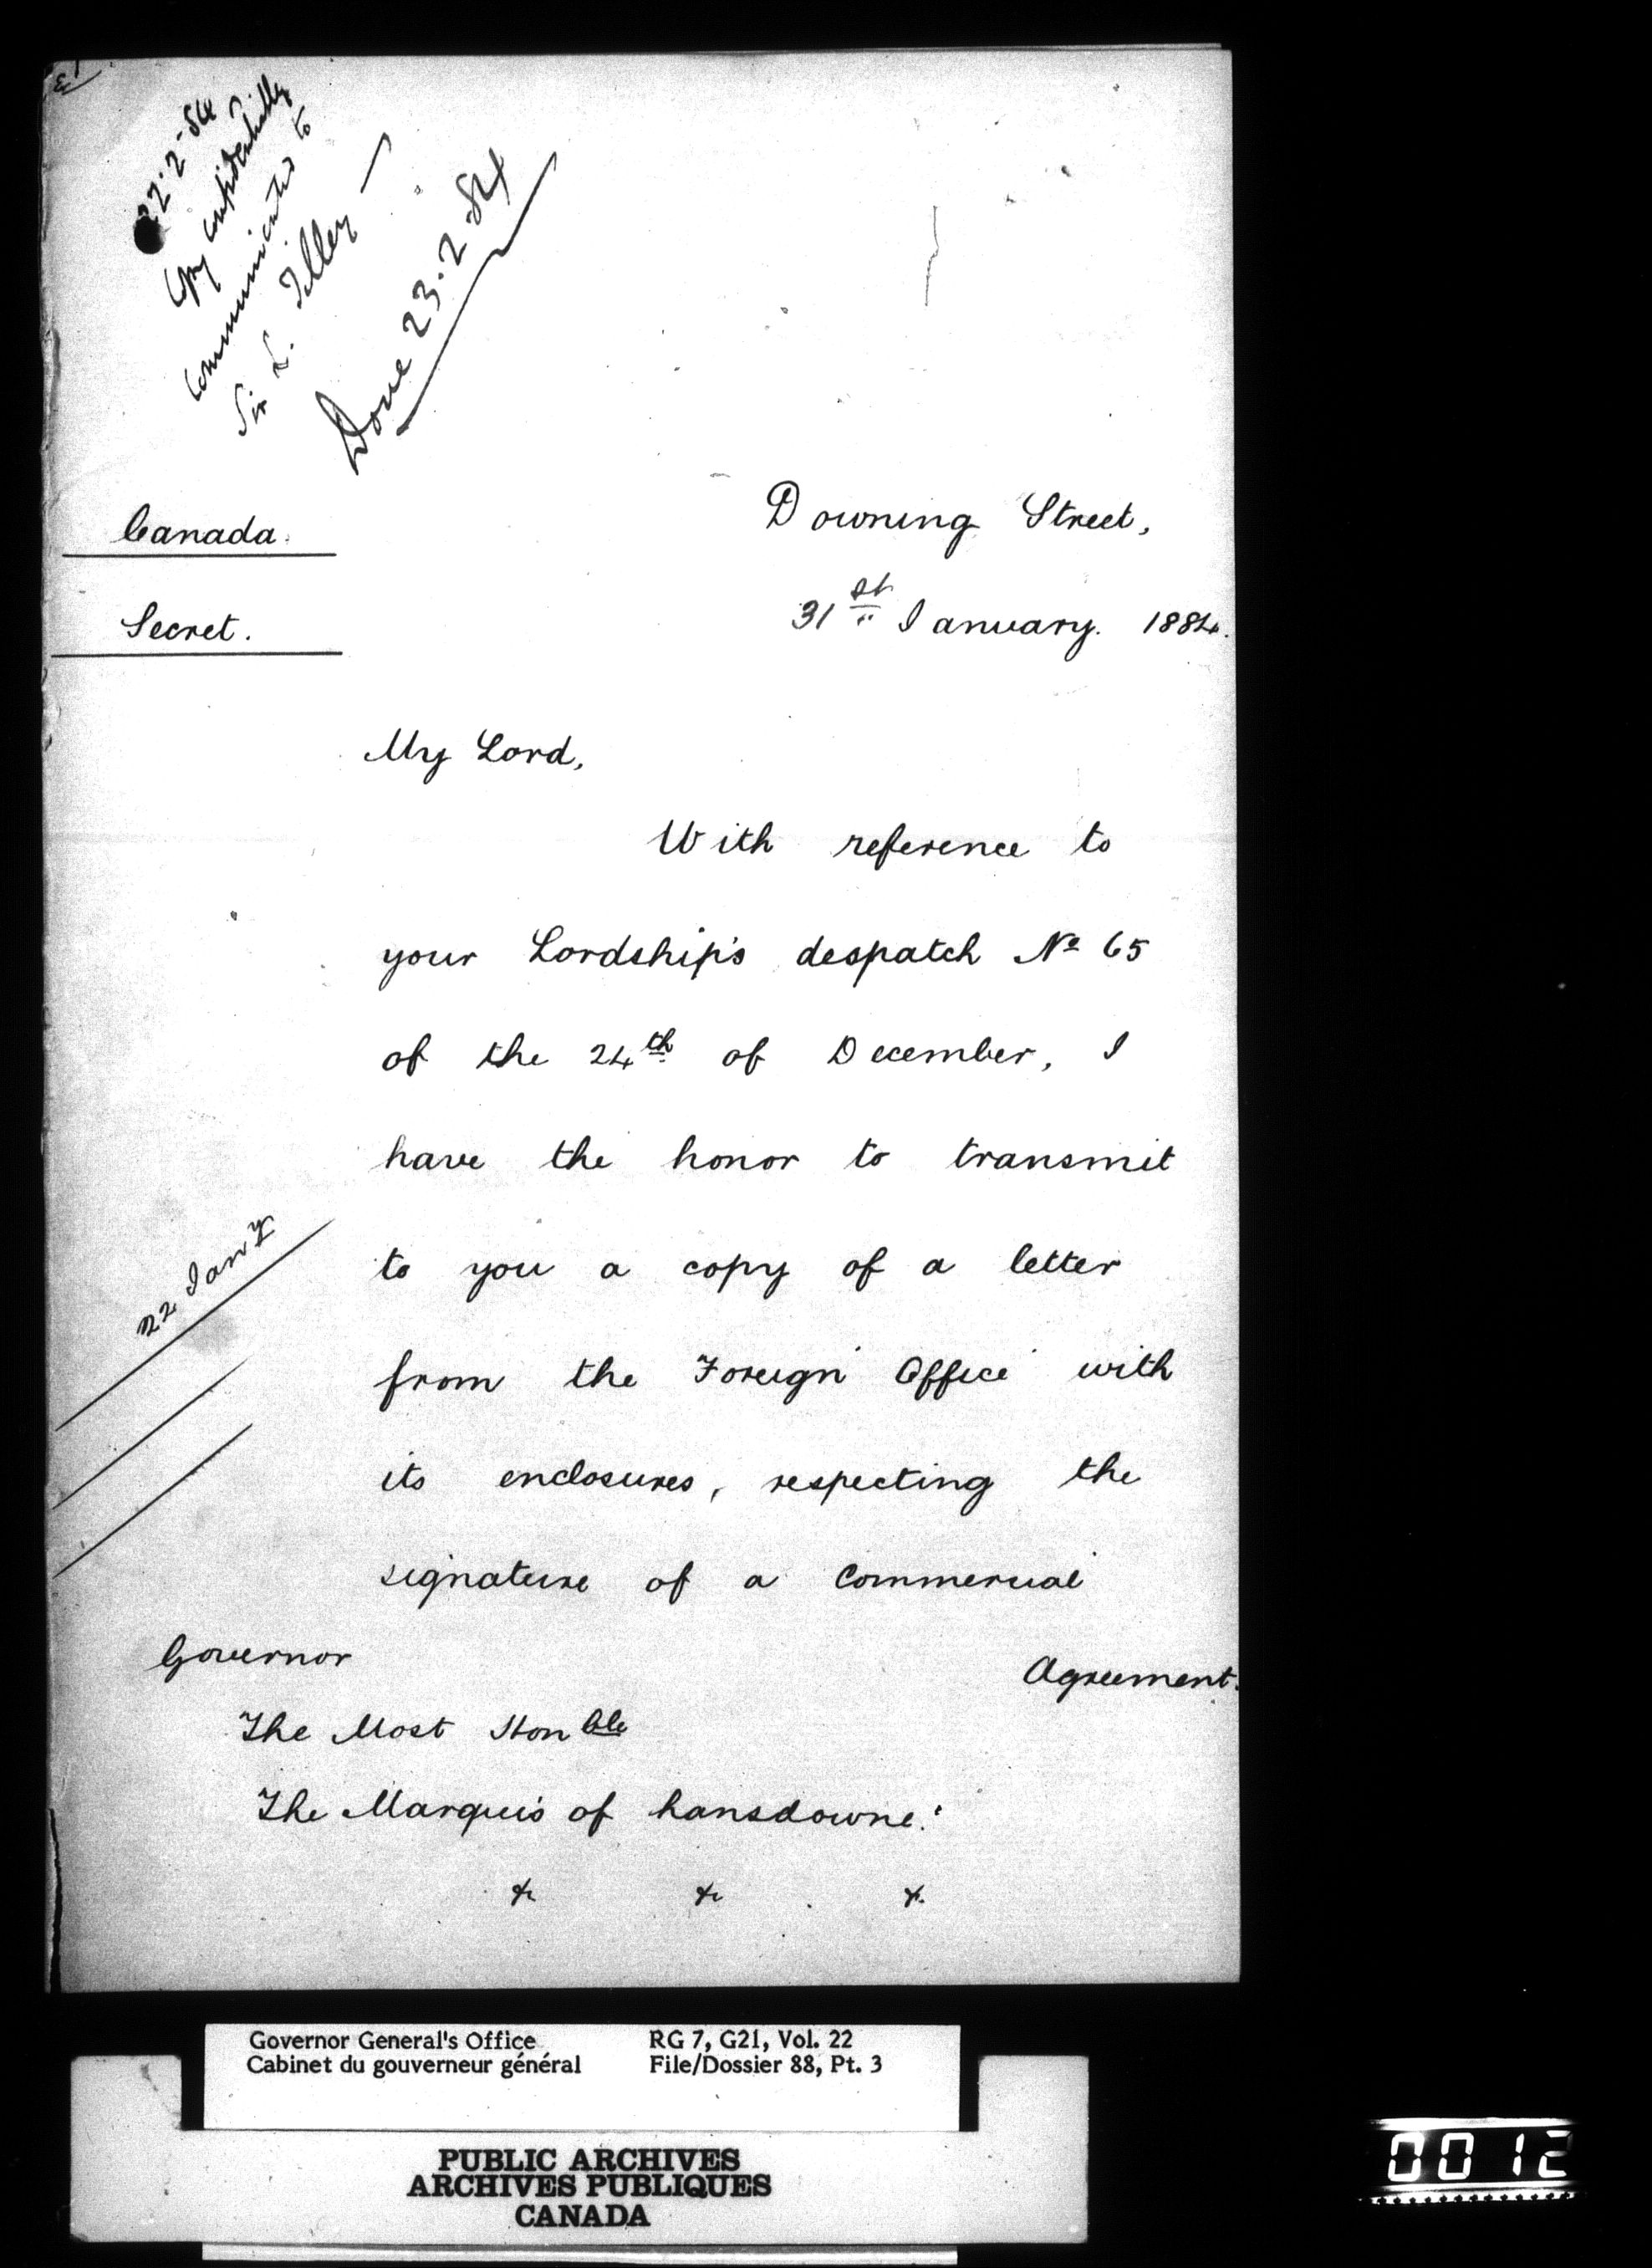 22.2.84
Copy confidentially
communicated to
Sir L. Tilley —
Done 23.2.84
Canada.
Secret.
Downing Street,
31st January. 1884.
My Lord,
With reference to
your Lordship's despatch No 65
of the 24th of December, I
have the honor to transmit
22 Jany
to you a copy of a letter
from the Foreign Office with
its enclosures, respecting the
signature of a Commercial
Agreement.
Governor
The Most Honble
The Marquis of Lansdowne.
&c &c &c.
Governor General's Office RG 7, G21, Vol. 22
Cabinet du gouverneur général File/Dossier 88, Pt. 3
PUBLIC ARCHIVES
ARCHIVES PUBLIQUES
CANADA
0012